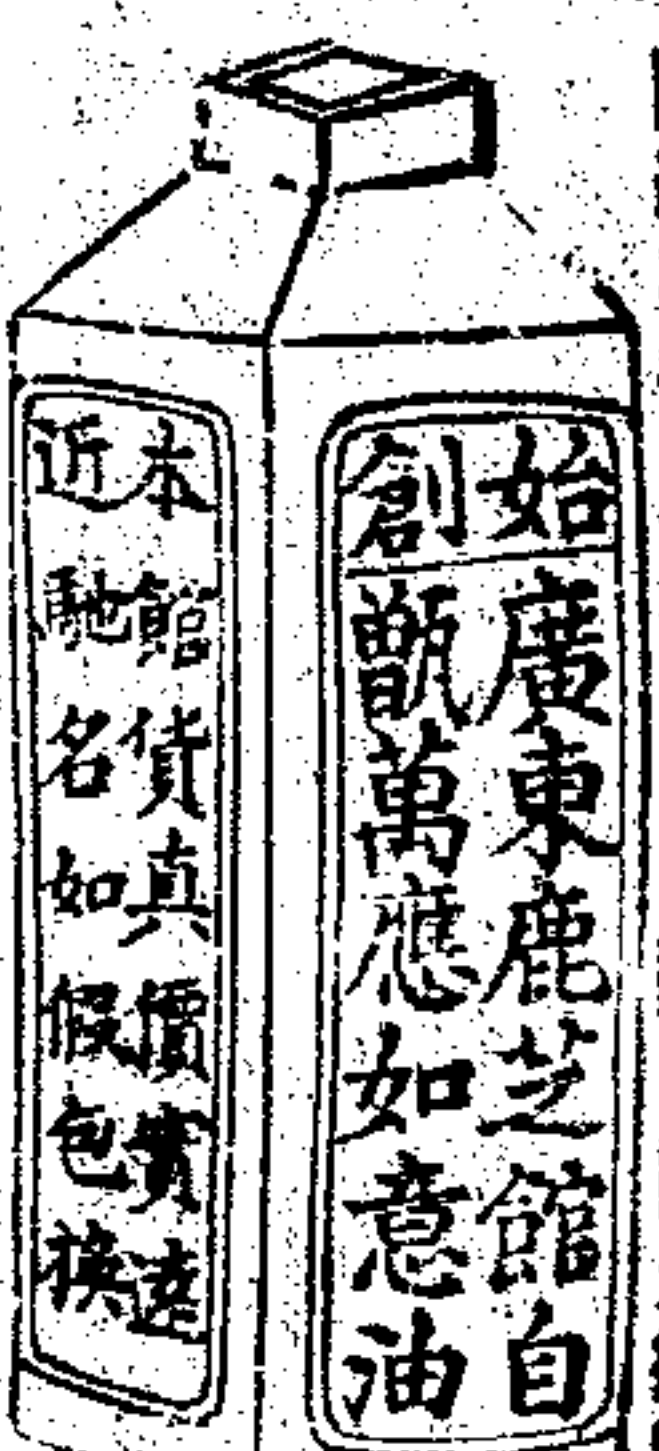 始創
廣東鹿芝館自
甑萬應如意油
本館貨真價實遠
近馳名如假包換